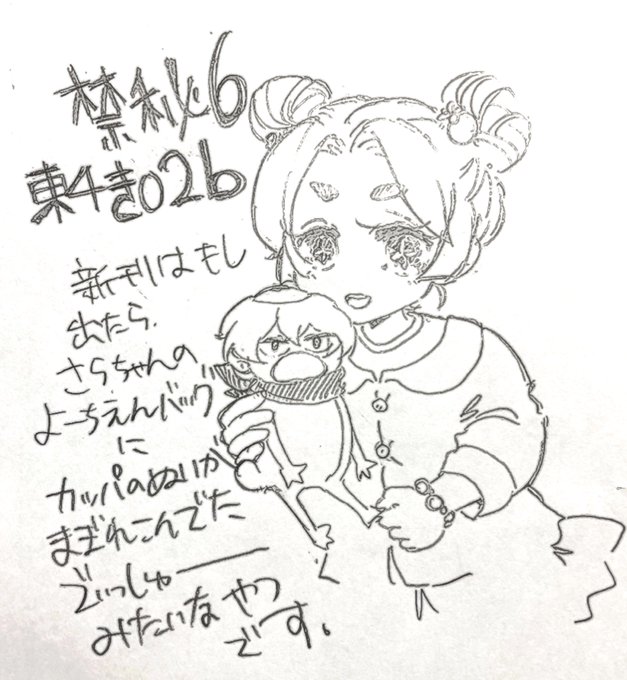 禁秘6
東4き02b
新刊はもし
出たら、
さらちゃんの
よーちえんバッグ
に
カッパのぬいが
まぎれこんでた
でぃっしゅ――
みたいなやつ
です。